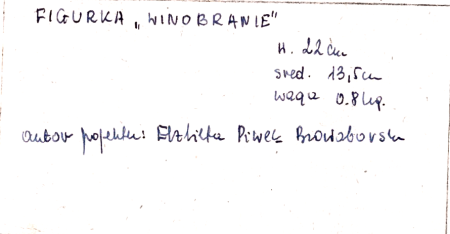 FIGURKA „WINOBRANIE"
H. 22 cm
śred. 13,5 cm
waga 0.8 kg.
autor projektu: Elżbieta Piwek Białoborska